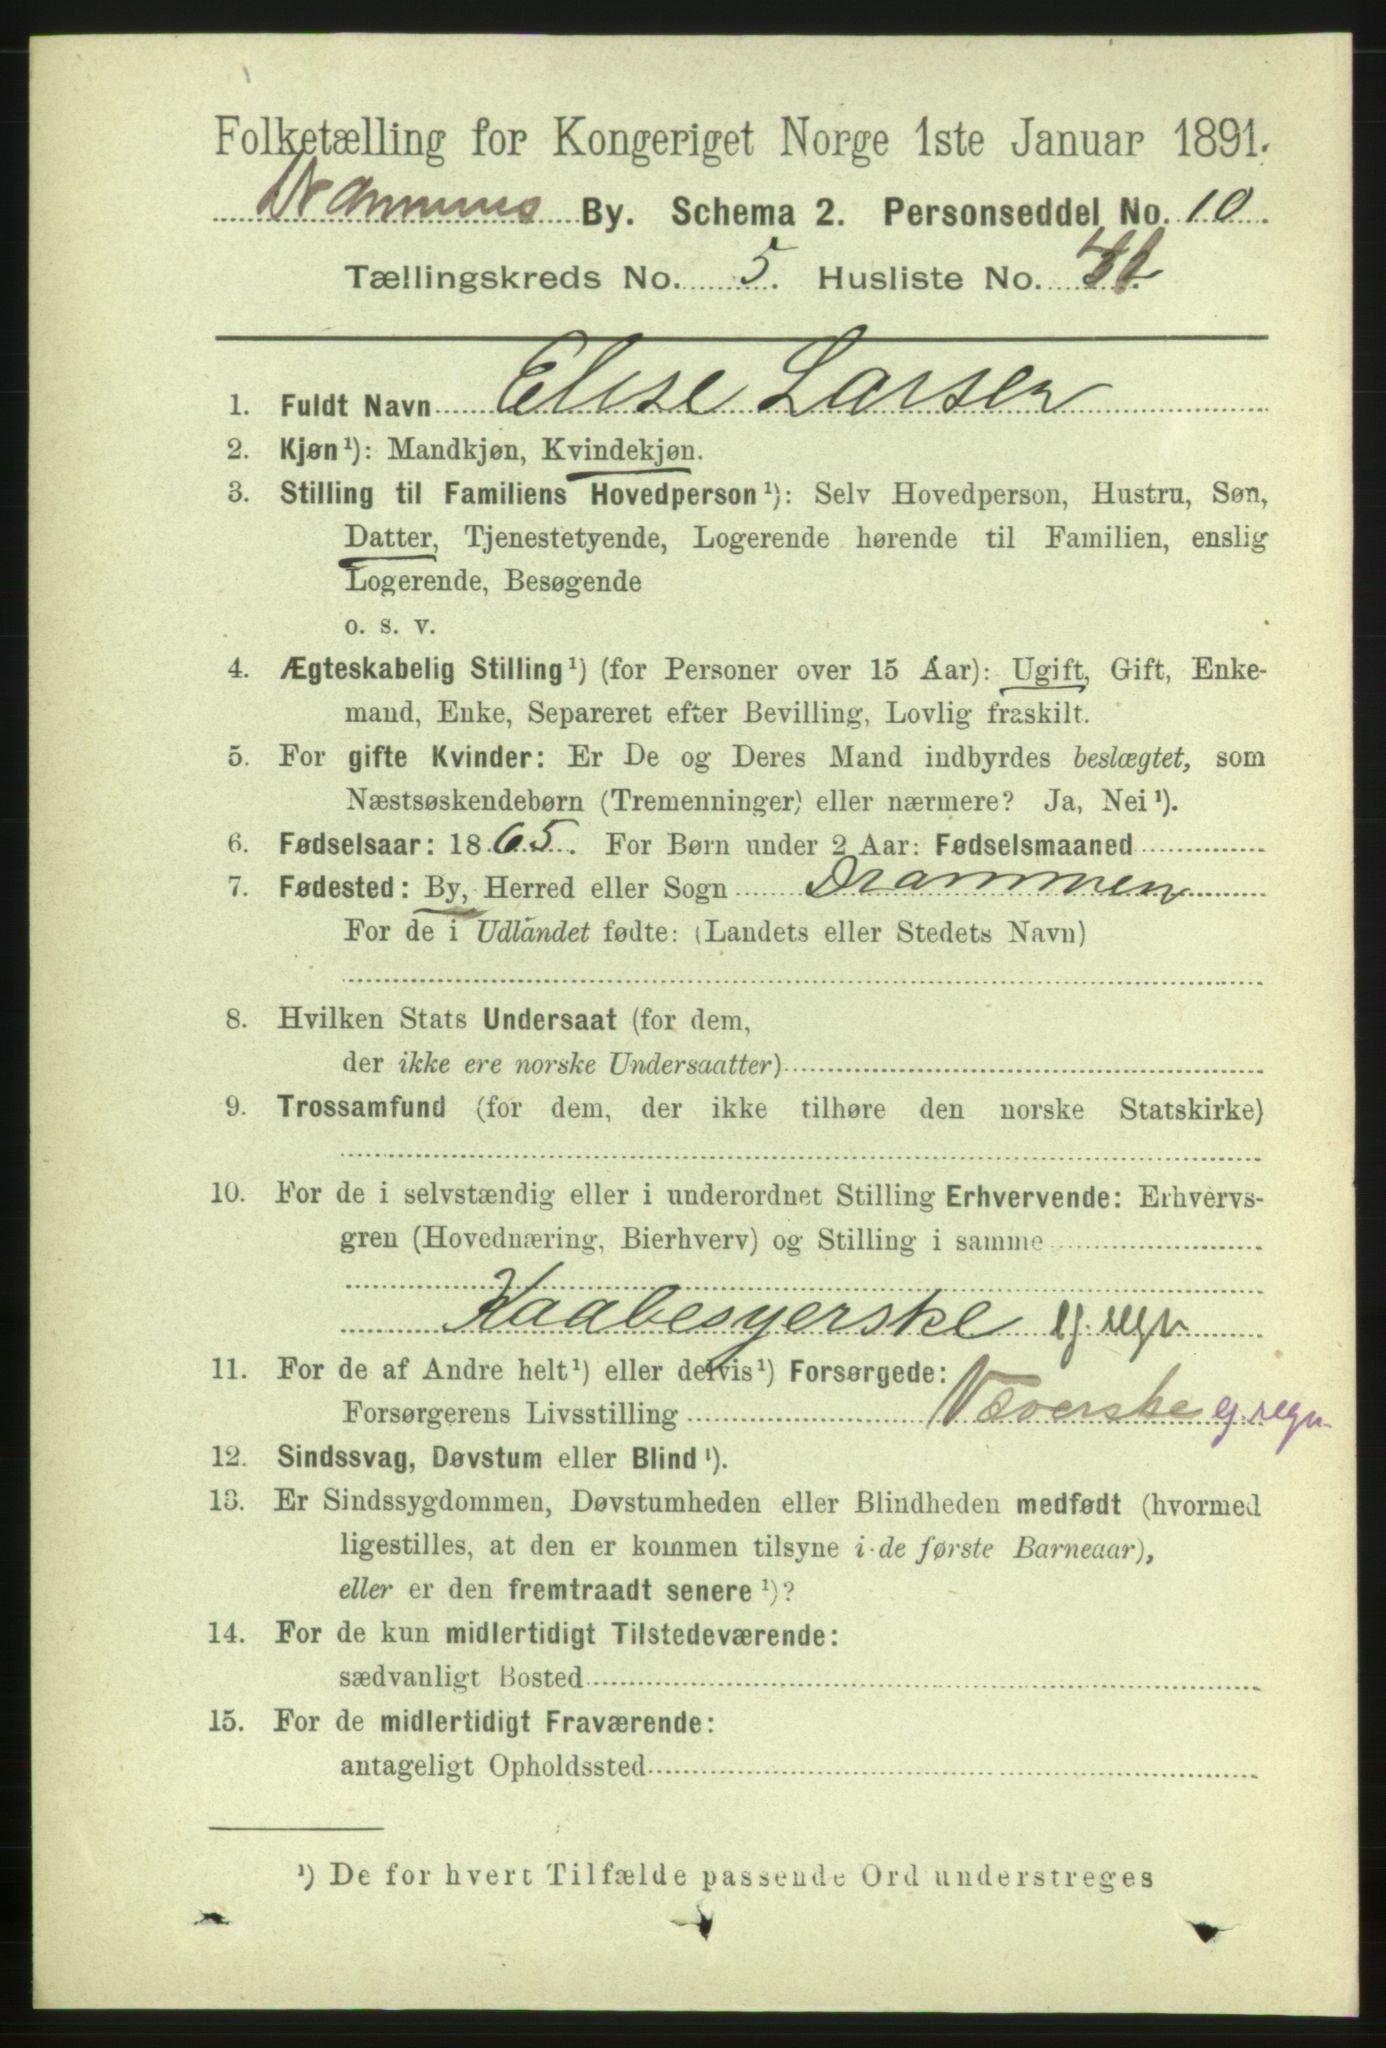 Folketælling for Kongeriget Norge 1ste Januar 1891.
Drammens By. Schema 2. Personseddel No. 10.
Tællingskreds No. 5. Husliste No.
1. Fuldt Navn Elise Larsen
2. Kjøn¹): Mandkjøn, Kvindekjøn.
3. Stilling til Familiens Hovedperson¹): Selv Hovedperson, Hustru, Søn,
Datter, Tjenestetyende, Logerende hørende til Familien, enslig
Logerende, Besøgende
o. s. v.
4. Ægteskabelig Stilling¹) (for Personer over 15 Aar): Ugift, Gift, Enke-
mand, Enke, Separeret efter Bevilling, Lovlig fraskilt.
5. For gifte Kvinder: Er De og Deres Mand indbyrdes beslægtet, som
Næstsøskendebørn (Tremenninger) eller nærmere? Ja, Nei¹).
6. Fødselsaar: 1865. For Børn under 2 Aar: Fødselsmaaned
7. Fødested: By, Herred eller Sogn Drammen
For de i Udlandet fødte: (Landets eller Stedets Navn)
8. Hvilken Stats Undersaat (for dem,
der ikke ere norske Undersaatter)
9. Trossamfund (for dem, der ikke tilhøre den norske Statskirke)
10. For de i selvstændig eller i underordnet Stilling Erhvervende: Erhvervs-
gren (Hovednæring, Bierhverv) og Stilling i samme
Kaabesyerske ej. regn
11. For de af Andre helt¹) eller delvis¹) Forsørgede:
Forsørgerens Livsstilling Væverske ej. regn
12. Sindssvag, Døvstum eller Blind¹).
13. Er Sindssygdommen, Døvstumheden eller Blindheden medfødt (hvormed
ligestilles, at den er kommen tilsyne i de første Barneaar),
eller er den fremtraadt senere¹)?
14. For de kun midlertidigt Tilstedeværende:
sædvanligt Bosted
15. For de midlertidigt Fraværende:
antageligt Opholdssted
¹) De for hvert Tilfælde passende Ord understreges